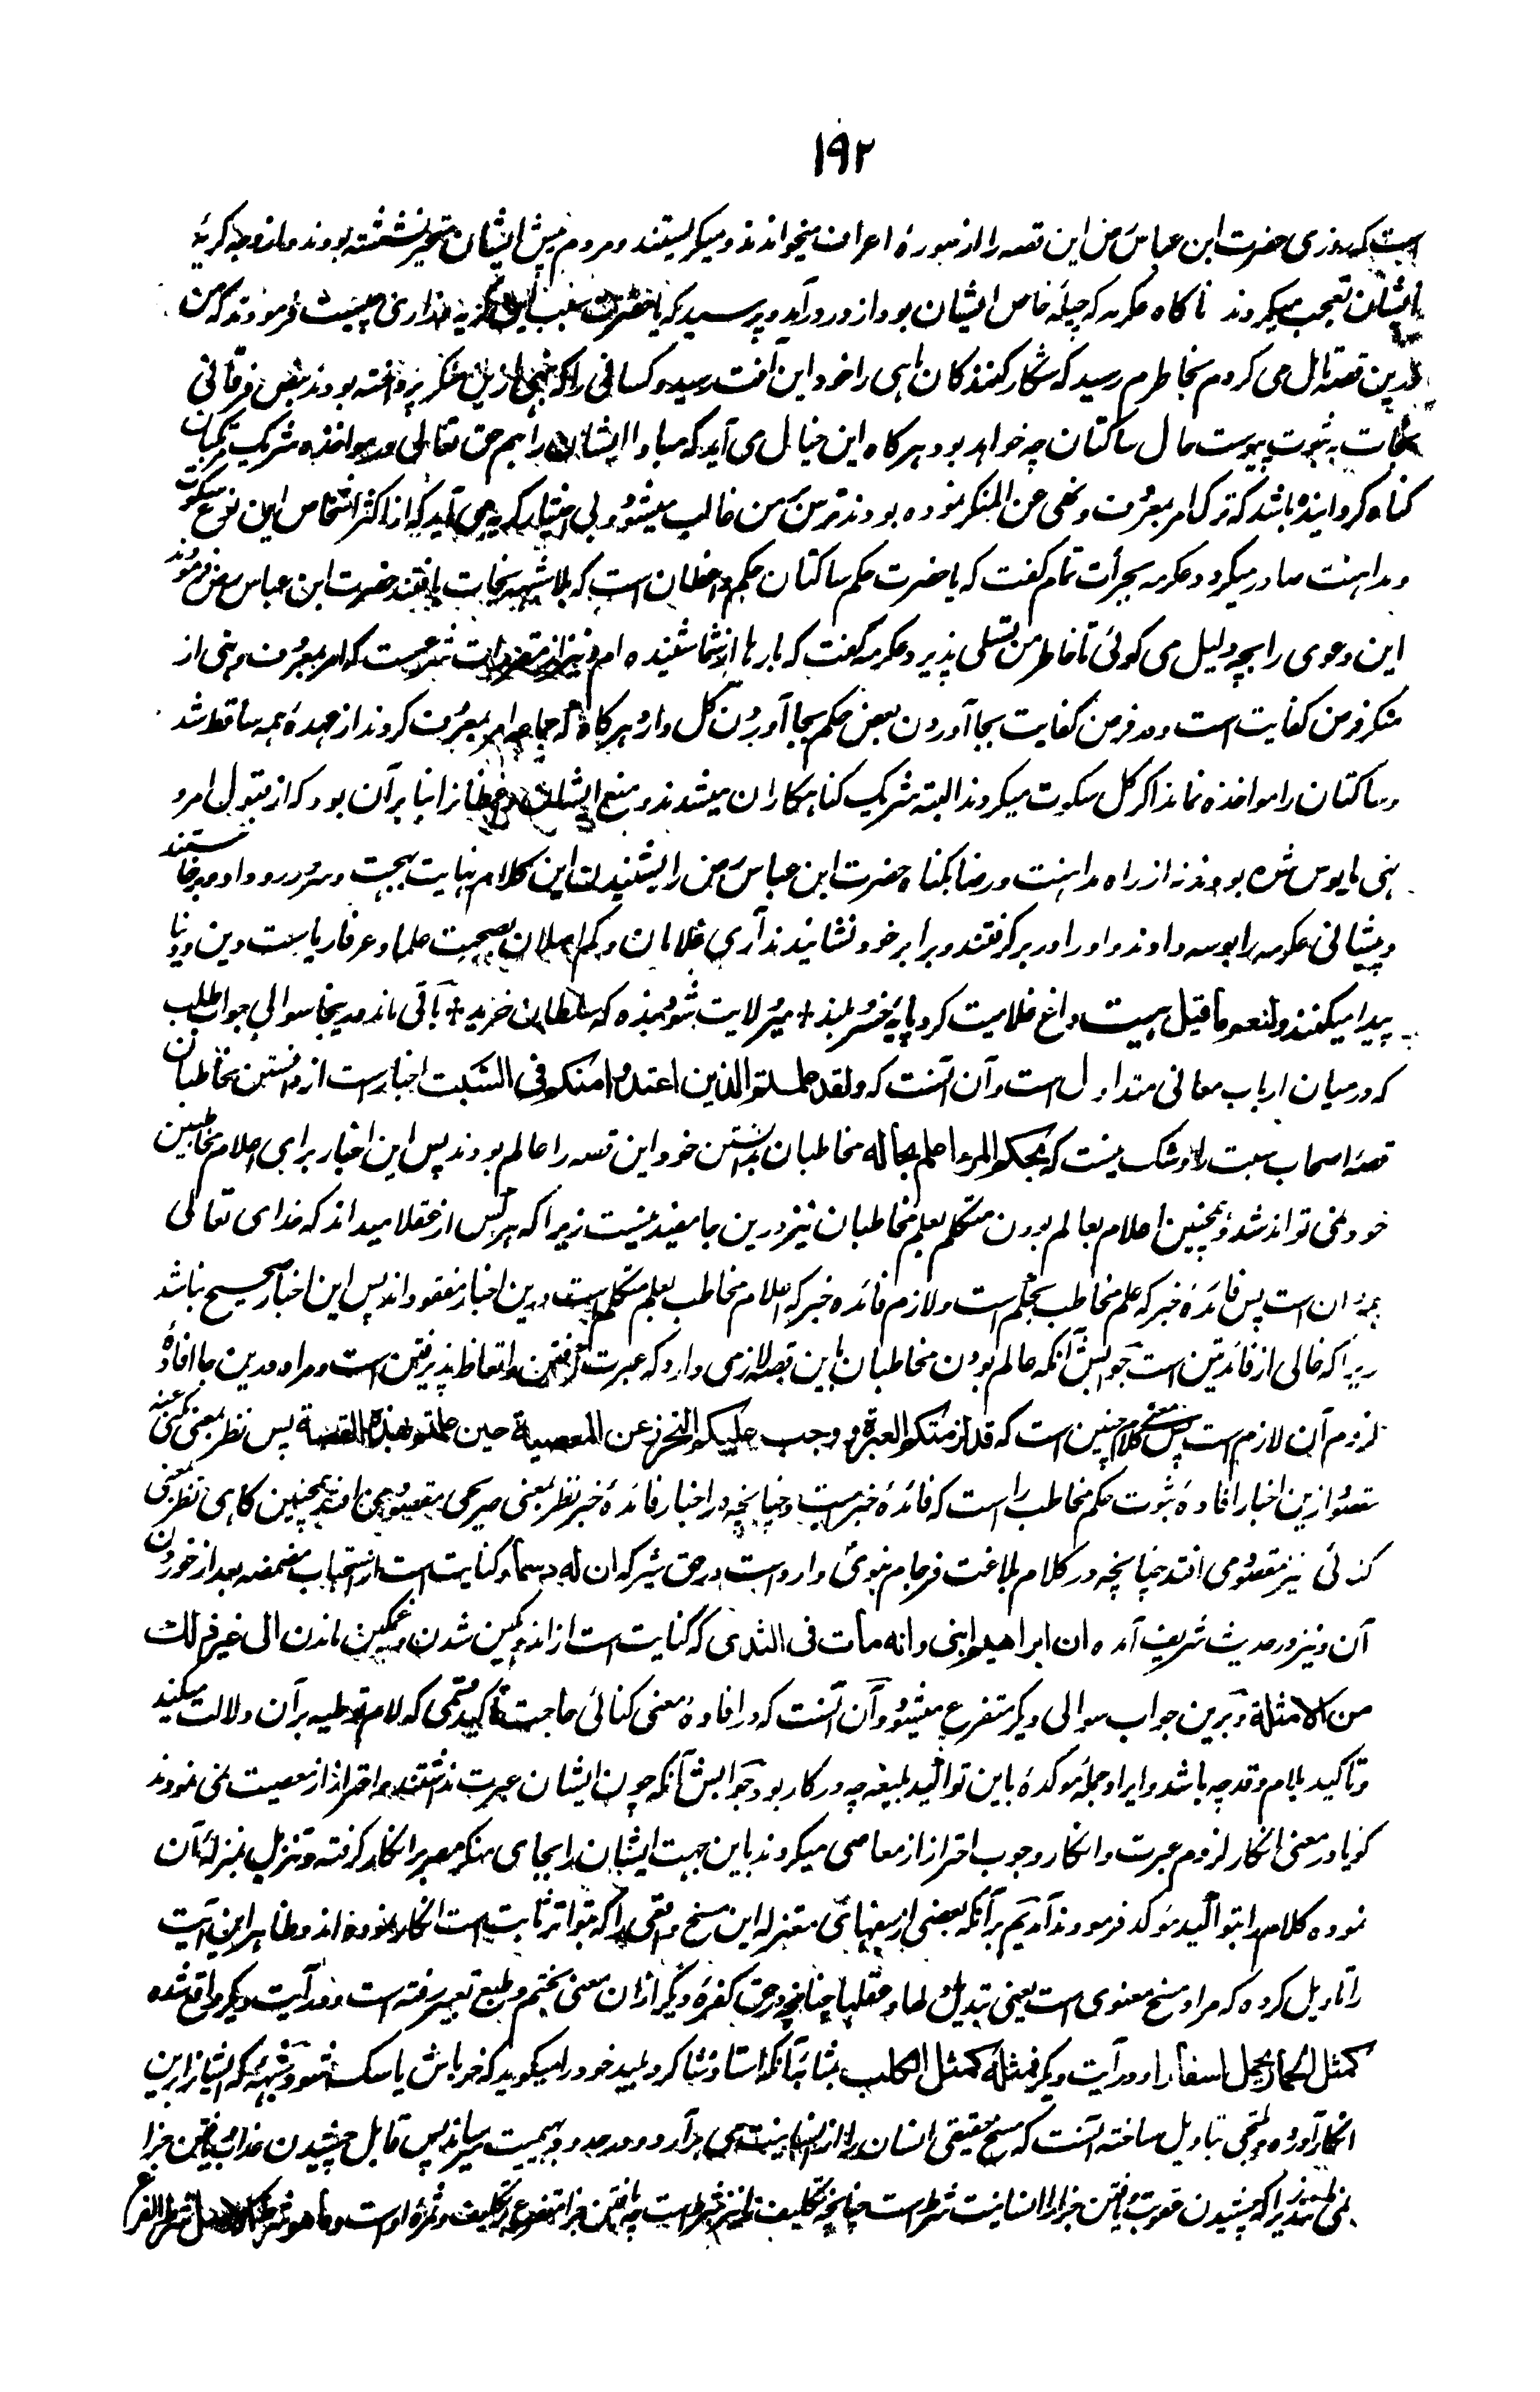 ۱۹۲
است که روزی حضرت ابن عباس رض این قصه را از سورهٔ اعراف میخواندند و میگریستند و مردم پیش ایشان متحیر نشسته بودند و از وجه گریهٔ
ایشان تعجب میکردند ناگاه عکرمه که چیلهٔ خاص ایشان بود از در درآمد و پرسید که یا حضرت سبب این گریه و زاری چیست فرمودند که من
درین قصه تامل می کردم بخاطرم رسید که شکار کنندگان ماهی را خود این آفت رسید و کسانی را که بنهی ازین منکر پرداخته بودند بنص قرآنی
نجات به ثبوت پیوست حال ساکتان چه خواهد بود هرگاه این خیال می آید که مبادا ایشان را هم حق تعالی در مواخذه شریک مرتکبان
گناه گردانیده باشد که ترک امر بمعروف و نهی عن المنکر نموده بودند ترس من غالب میشود و بی اختیار گریه می آید که از اکثر اشخاص این نوع سکوت
و مداهنت صادر میگردد عکرمه بجرأت تمام گفت که یا حضرت حکم ساکتان حکم واعظان است که بلا شبهه نجات یافتند حضرت ابن عباس رض فرمودند
این دعوی را بچه دلیل می گوئی تا خاطر من تسلی پذیرد عکرمه گفت که بارها از شما شنیده ام و نیز از مقررات شرعیست که امر بمعروف و نهی از
منکر فرض کفایت است و در فرض کفایت بجا آوردن بعض حکم بجا آوردن کل دارد هرگاه که جماعه امر بمعروف کردند از عهدهٔ همه ساقط شد
و ساکتان را مواخذه نماند اگر کل سکوت میکردند البته شریک گناهکاران میشدند و منع ایشان وعظ را بنابر آن بود که از قبول امر و
نهی مایوس شده بودند نه از راه مداهنت و رضا بگناه حضرت ابن عباس رض را بشنیدن این کلام نهایت بهجت و سرور رو داد و برخاستند
و پیشانی عکرمه را بوسه دادند و او را در بر گرفتند و برابر خود نشانیدند آری غلامان و کم اصلان بصحبت علما و عرفا ریاست دین و دنیا
پیدا میکنند ولنعم ما قیل بیت داغ غلامیت کرد پایهٔ خسرو بلند + میر ولایت شود بنده که سلطان خرید + باقی ماند درینجا سوالی جواب طلب
که در میان ارباب معانی متداول است و آن آنست که ولقد علمتم الذین اعتدوا منکم فی السبت اخبار است از دانستن مخاطبان
قصهٔ اصحاب سبت را و شک نیست که بحکم المرء اعلم بحاله مخاطبان بدانستن خود این قصه را عالم بودند پس این اخبار برای اعلام مخاطبین
خود نمی تواند شد و همچنین اعلام بعالم بودن متکلم بعلم مخاطبان نیز درین جا مفید نیست زیرا که هر کس از عقلا میداند که خدای تعالی
همه دان است پس فائدهٔ خبر که علم مخاطب بحکم است و لازم فائده خبر که اعلام مخاطب بعلم متکلم است درین اخبار مفقوداند پس این اخبار صحیح نباشد
زیرا که خالی از فائدتین است جوابش آنکه عالم بودن مخاطبان باین قصه لازمی دارد که عبرت گرفتن و اتعاظ پذیرفتن است و مراد درین جا افادهٔ
لزوم آن لازم است پس معنی کلام چنین است که قد لزمتکم العبرة و وجب علیکم التحرز عن المعصیة حین علمتم هذه القصة پس نظر بمعنی کنائی
مقصود ازین اخبار افادهٔ ثبوت حکم مخاطب را است که فائدهٔ خبر است و چنانچه در اخبار فائدهٔ خبر نظر بمعنی صریحی مقصود می افتد همچنین گاهی نظر بمعنی
کنائی نیز مقصود می افتد چنانچه در کلام بلاغت فرجام نبوی وارد است در حق شیر که ان له دسما و کنایت است از استحباب مضمضه بعد از خوردن
آن و نیز در حدیث شریف آمده ان ابراهیم ابنی وانه مات فی الثدی که کنایت است از اندوهگین شدن و غمگین ماندن الی غیر ذلك
من الامثلة و برین جواب سوالی دیگر متفرع میشود و آن آنست که در افادهٔ معنی کنائی حاجت تاکید قسمی که لام توطیه بر آن دلالت میکند
و تاکید بلام و قد چه باشد و ایراد جملهٔ موکدهٔ باین تواکید بلیغه چه در کار بود جوابش آنکه چون ایشان عبرت نداشتند و احتراز از معصیت نمی نمودند
گویا در معنی انکار لزوم عبرت و انکار وجوب احتراز از معاصی میکردند باین جهت ایشان را بجای منکر مصر بر انکار گرفته و تنزیل بمنزلهٔ آن
نموده کلام را بتواکید موکد فرمودند آمدیم بر آنکه بعضی از سفهای معتزله این مسخ واقعی را که بتواتر ثابت است انکار نموده اند و ظاهر این آیت
را تاویل کرده که مراد مسخ معنوی است یعنی تبدیل دلها و عقلها چنانچه در حق کفرهٔ دیگر ازان معنی بختم و طبع تعبیر رفته است و در آیت دیگر واقع شده
کمثل الحمار یحمل اسفارا و در آیت دیگر فمثله کمثل الکلب بمثابهٔ آنکه استاد شاگرد بلید خود را میگوید که خر باش یا سگ شو و شبههٔ که ایشان را برین
انکار آورده و ملتجی بتاویل ساخته آنست که مسخ حقیقی انسان را از انسانیت می برآرد و در حدود بهیمیت میرساند پس قابل چشیدن عذاب و یافتن جزا
نمی ماند زیرا که چشیدن عقوبت و یافتن جزا را انسانیت شرط است چنانچه تکلیف را نیز شرط است چه یافتن جزا متفرع بر تکلیف و ثمرهٔ او است وما هو شرط الاصل شرط الفرع